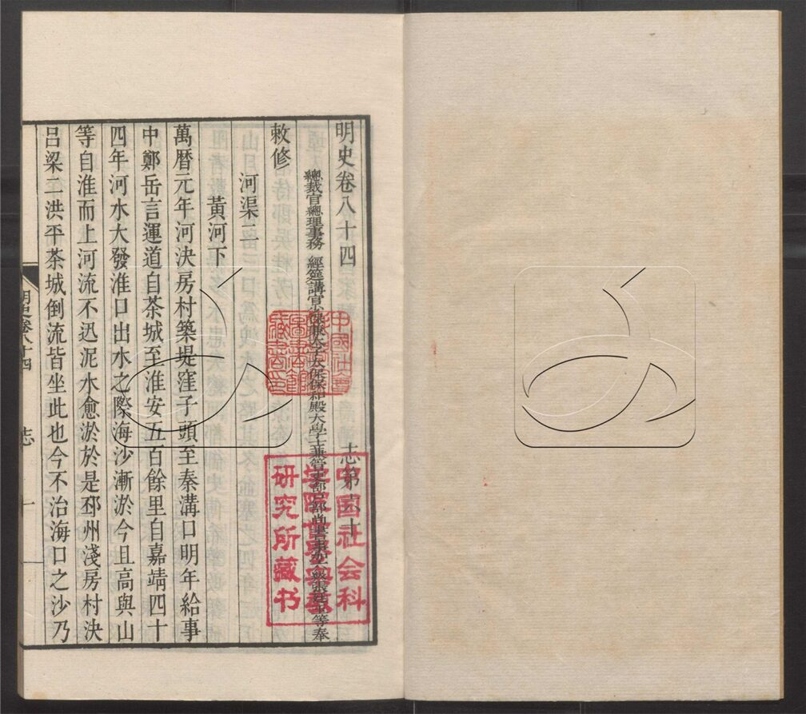 明史卷八十四 志第六十
總裁官總理事務 經筵講官少保兼太子太保保和殿大學士兼管吏部
等奉
敕修
河渠二
黃河下
萬曆元年河決房村築堤窪子頭至秦溝口明年給事
中鄭岳言運道自茶城至淮安五百餘里自嘉靖四十
四年河水大發淮口出水之際海沙漸淤今且高與山
等自淮而上河流不迅泥水愈淤於是邳州淺房村決
呂梁二洪平茶城倒流皆坐此也今不治海口之沙乃
明史卷八十四 志 一
中国社会科
学院世界宗教
研究所藏书